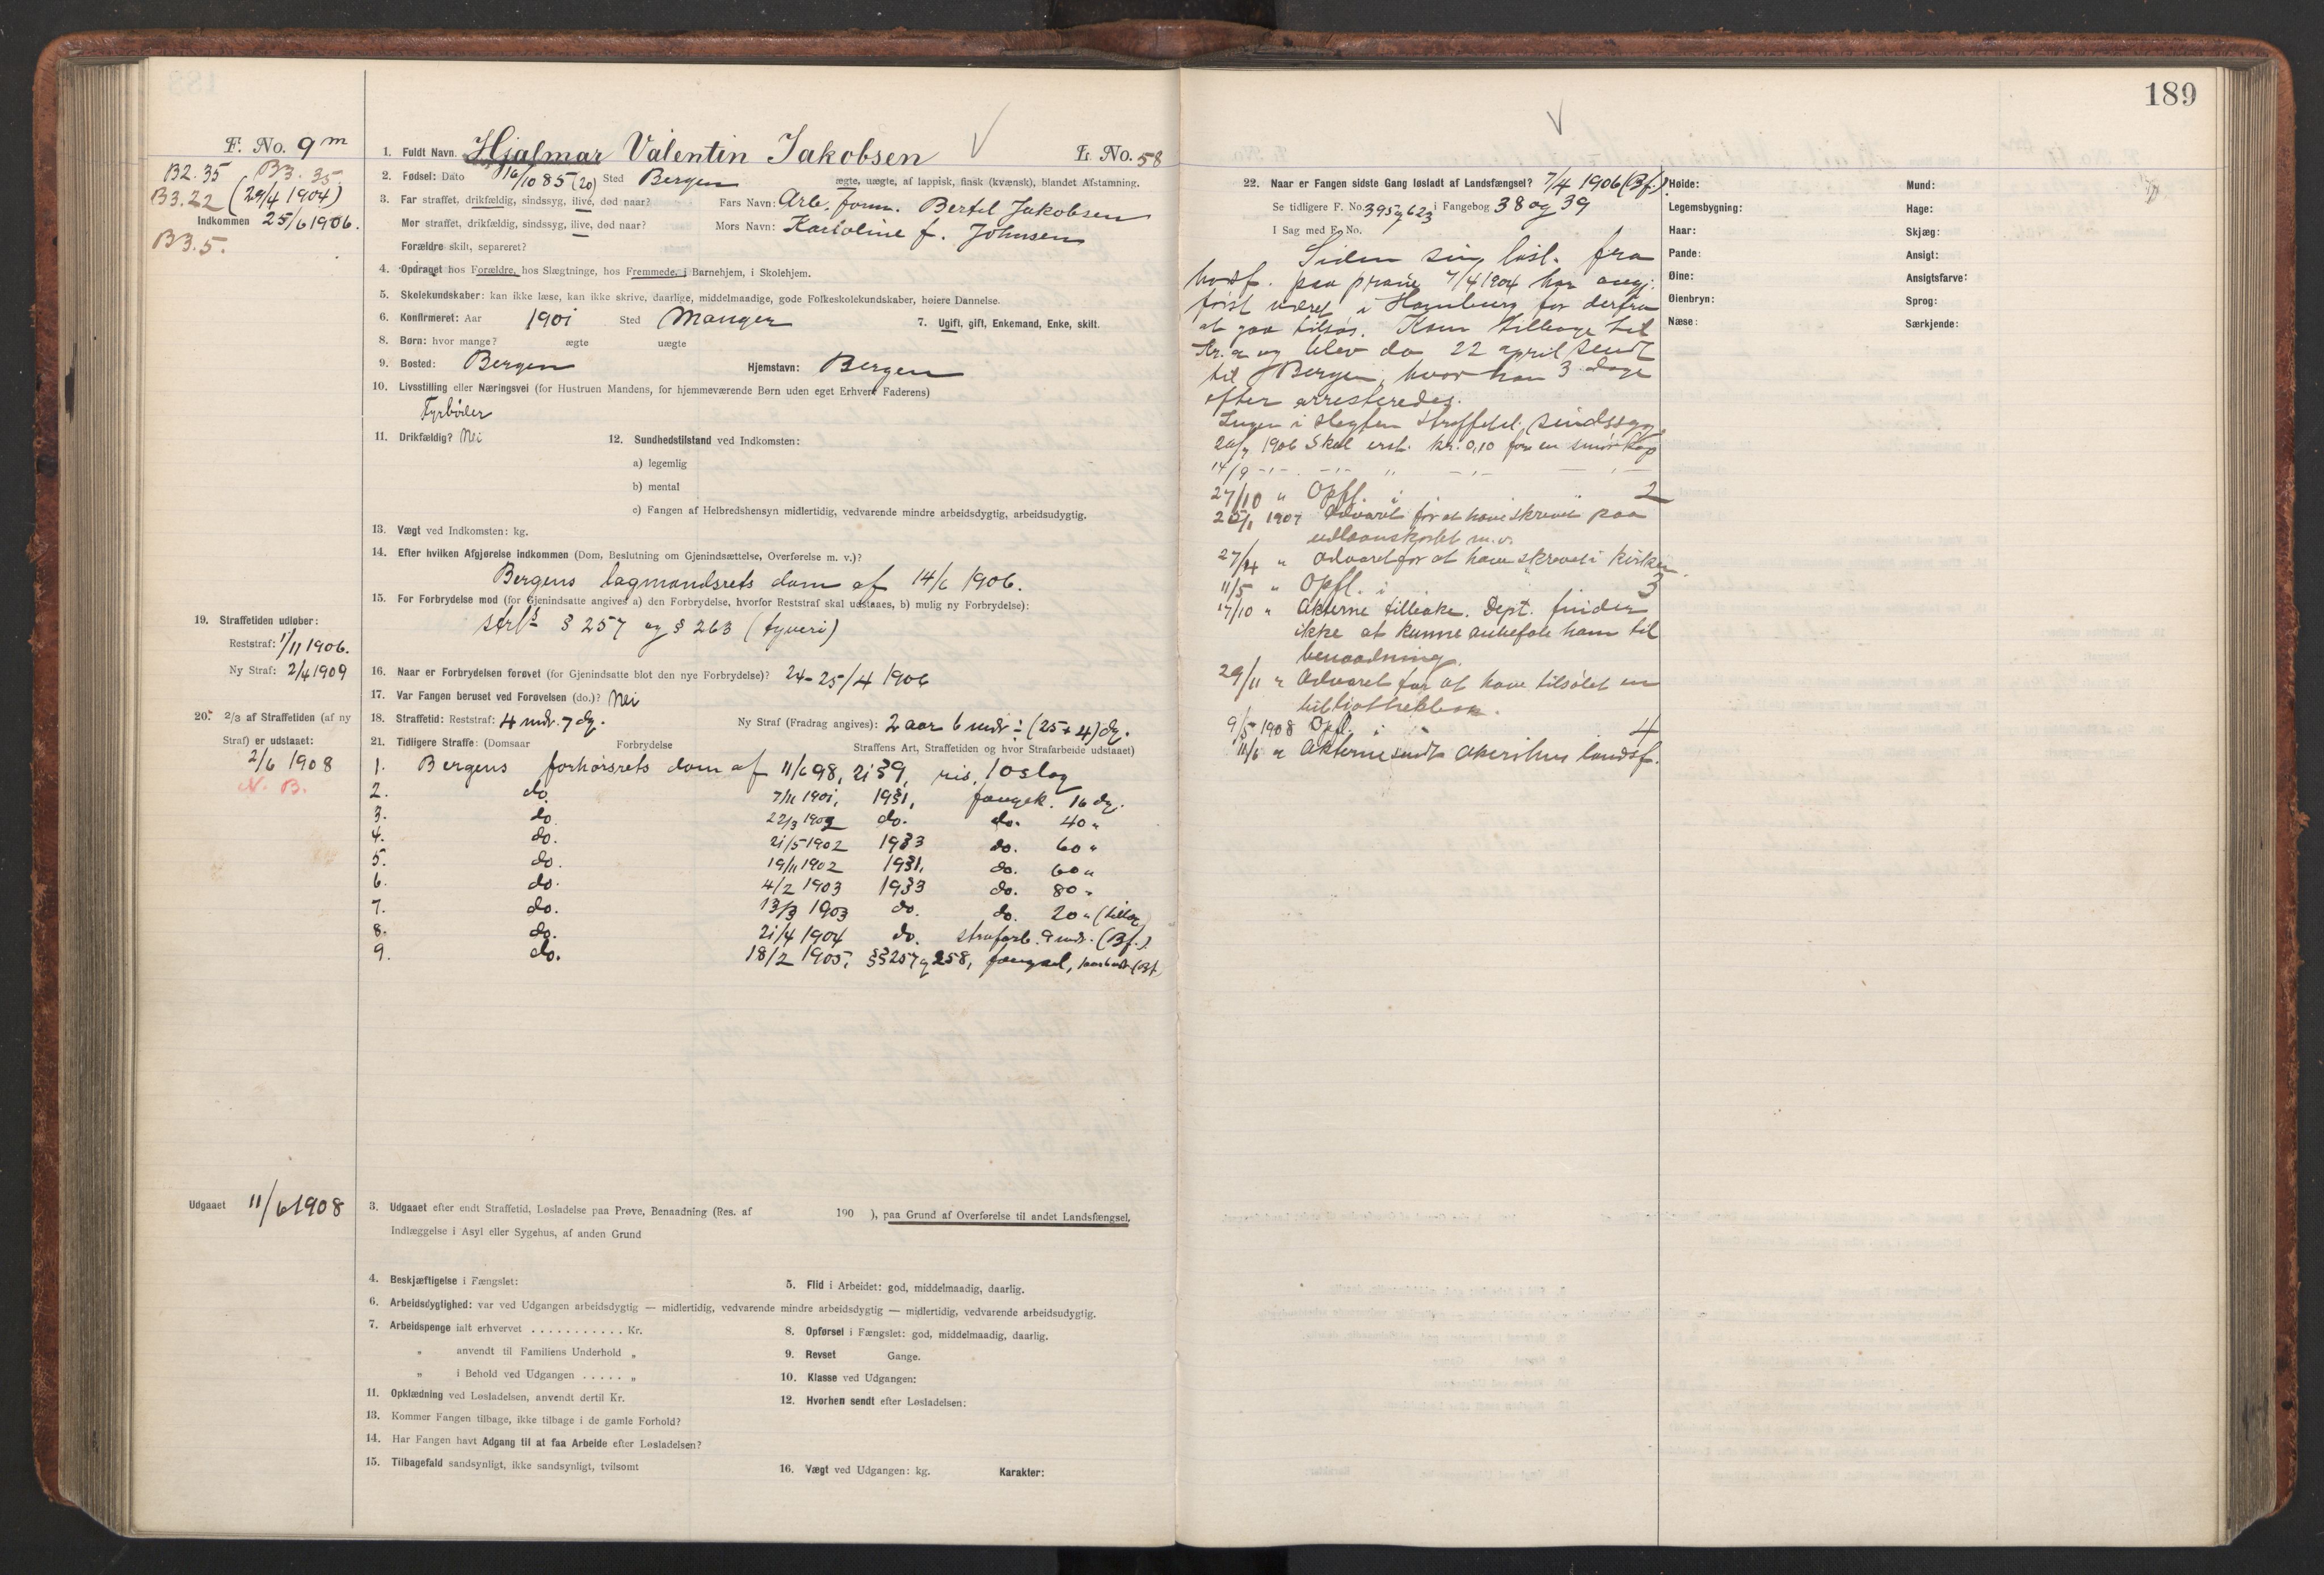 189
F. No. 9 m
B2. 35 B3. 35.
B3. 22 (29/4 1904)
Indkommen 25/6 1906.
B3. 5.
1. Fuldt Navn. Hjalmar Valentin Jakobsen L. No. 58
2. Fødsel: Dato 16/10 85 (20) Sted Bergen ægte, uægte, af lappisk, finsk (kvænsk), blandet Afstamning.
3. Far straffet, drikfældig, sindssyg, ilive, død naar? Fars Navn: Arb. form. Bertel Jakobsen
Mor straffet, drikfældig, sindssyg, ilive, død naar? Mors Navn: Karoline f. Johnsen
Forældre skilt, separeret?
4. Opdraget hos Forældre, hos Slægtninge, hos Fremmede, i Barnehjem, i Skolehjem.
5. Skolekundskaber: kan ikke læse, kan ikke skrive, daarlige, middelmaadige, gode Folkeskolekundskaber, høiere Dannelse.
6. Konfirmeret: Aar 1901 Sted Manger 7. Ugift, gift, Enkemand, Enke, skilt.
8. Børn: hvor mange? ægte uægte
9. Bosted: Bergen Hjemstavn: Bergen
10. Livsstilling eller Næringsvei (for Hustruen Mandens, for hjemmeværende Børn uden eget Erhverv Faderens)
Fyrbøder
11. Drikfældig? Nei 12. Sundhedstilstand ved Indkomsten:
a) legemlig
b) mental
c) Fangen af Helbredshensyn midlertidig, vedvarende mindre arbeidsdygtig, arbeidsudygtig.
13. Vægt ved Indkomsten: kg.
14. Efter hvilken Afgjørelse indkommen (Dom, Beslutning om Gjenindsættelse, Overførelse m. v.)?
Bergens lagmandsrets dom af 14/6 1906.
15. For Forbrydelse mod (for Gjenindsatte angives a) den Forbrydelse, hvorfor Reststraf skal udstaaes, b) mulig ny Forbrydelse):
§ 257 og § 263 (tyveri)
19. Straffetiden udløber:
Reststraf: 1/11 1906.
Ny Straf: 2/4 1909
16. Naar er Forbrydelsen forøvet (for Gjenindsatte blot den nye Forbrydelse)? 24-25/4 1906
17. Var Fangen beruset ved Forøvelsen (do.)? Nei
20. 2/3 af Straffetiden (af ny
Straf) er udstaaet:
2/6 1908
N. B.
18. Straffetid: Reststraf: 4 mdr. 7 dg. Ny Straf (Fradrag angives): 2 aar 6 mdr ÷ (25+4) dg.
21. Tidligere Straffe: (Domsaar Forbrydelse Straffens Art, Straffetiden og hvor Strafarbeide udstaaet)
1. Bergens forhørsrets dom af 11/6 98, 21 § 9, ris, 10 slag
2. do. 7/11 1901, 19 § 1, fængsl. 16 dg.
3. do. 22/3 1902 do. do. 40 "
4. do. 21/5 1902 19 § 3 do. 60 "
5. do. 19/11 1902 19 § 1, do. 60 "
6. do. 4/2 1903 19 § 3 do. 80 "
7. do. 13/3 1903 do. do. 20 " (tillæg
8. do. 21/4 1904 do. strafarb. 9 mdr. (Bf.)
9. do. 18/2 1905, §§ 257 og 258, fængsel, (Bf.)
Udgaaet 11/6 1908
3. Udgaaet efter endt Straffetid, Løsladelse paa Prøve, Benaadning (Res. af 190 ), paa Grund af Overførelse til andet Landsfængsel,
Indlæggelse i Asyl eller Sygehus, af anden Grund
4. Beskjæftigelse i Fængslet: 5. Flid i Arbeidet: god, middelmaadig, daarlig.
6. Arbeidsdygtighed: var ved Udgangen arbeidsdygtig — midlertidig, vedvarende mindre arbeidsdygtig — midlertidig, vedvarende arbeidsudygtig.
7. Arbeidspenge ialt erhvervet . . . . . . . . . . . Kr. 8. Opførsel i Fængslet: god, middelmaadig, daarlig.
„ anvendt til Familiens Underhold „ 9. Revset Gange.
„ i Behold ved Udgangen . . . . . „ 10. Klasse ved Udgangen:
11. Opklædning ved Løsladelsen, anvendt dertil Kr. 12. Hvorhen sendt efter Løsladelsen:
13. Kommer Fangen tilbage, ikke tilbage i de gamle Forhold?
14. Har Fangen havt Adgang til at faa Arbeide efter Løsladelsen?
15. Tilbagefald sandsynligt, ikke sandsynligt, tvilsomt 16. Vægt ved Udgangen: kg. Karakter:
22. Naar er Fangen sidste Gang løsladt af Landsfængsel? 7/4 1906 (Bf.)
Se tidligere F. No. 395 og 623 i Fangebog 38 og 39
I Sag med F. No.
Siden sin løsl. fra
landsf. paa prøve 7/4 1904 har angj.
først været i Hamburg for derfra
at gaa tilsjøs. Kom tilbage til
Kr.a og blev da 22 april sendt
til Bergen, hvor han 3 dage
efter arresteredes.
Ingen i slægten straffet el. sindssyg.
20/7 1906 Skal erst. kr. 0,10 for en smørkop
14/9 -"- -"- " -"- — "—
27/10 " Opfl. i 2
25/1 1907 Advaret for at have skrevet paa
udlaanskortet m.v.
27/4 " Advaret for at have skrevet i kirken.
11/5 " Opfl. i 3
17/10 " Akterne tilbake. Dept. finder
ikke at kunne anbefale ham til
benaadning.
29/11 " Advaret for at have tilsølet en
bibliothekbok.
9/5 1908 Opfl. i 4
11/6 " Akterne sendt Akershus landsf.
Høide: Mund:
Legemsbygning: Hage:
Haar: Skjæg:
Pande: Ansigt:
Øine: Ansigtsfarve:
Øienbryn: Sprog:
Næse: Særkjende: